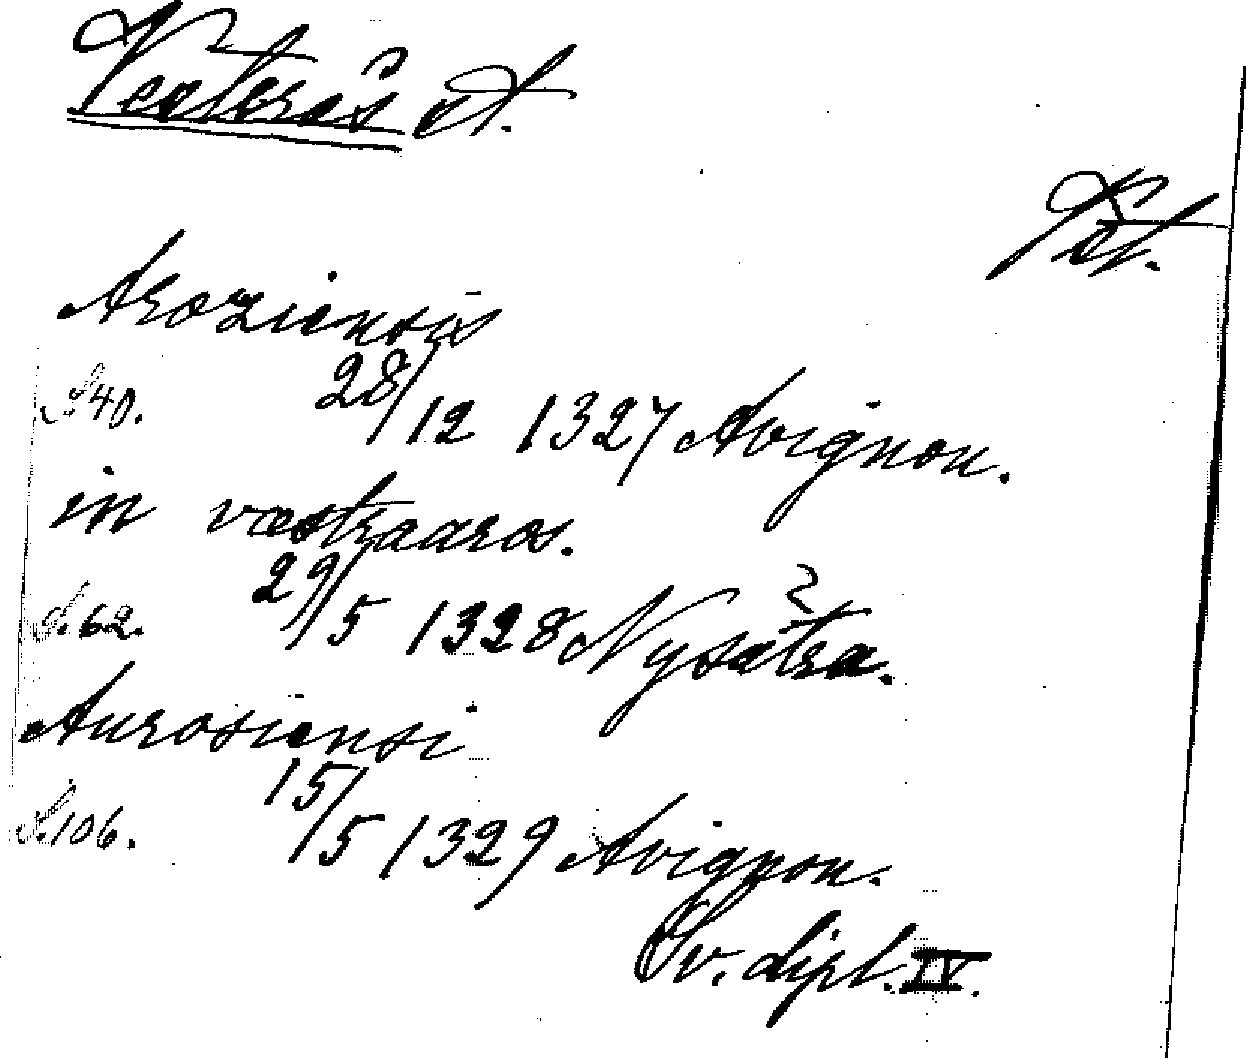 Västerås st.
Fot.
Aroziensis
S. 40. 28/12 1327 Avignon.
in væstraaros.
S. 62. 29/5 1328 Nysätra.
Aurosiensi
S. 106. 15/5 1329 Avignon.
Sv. dipl. IV.